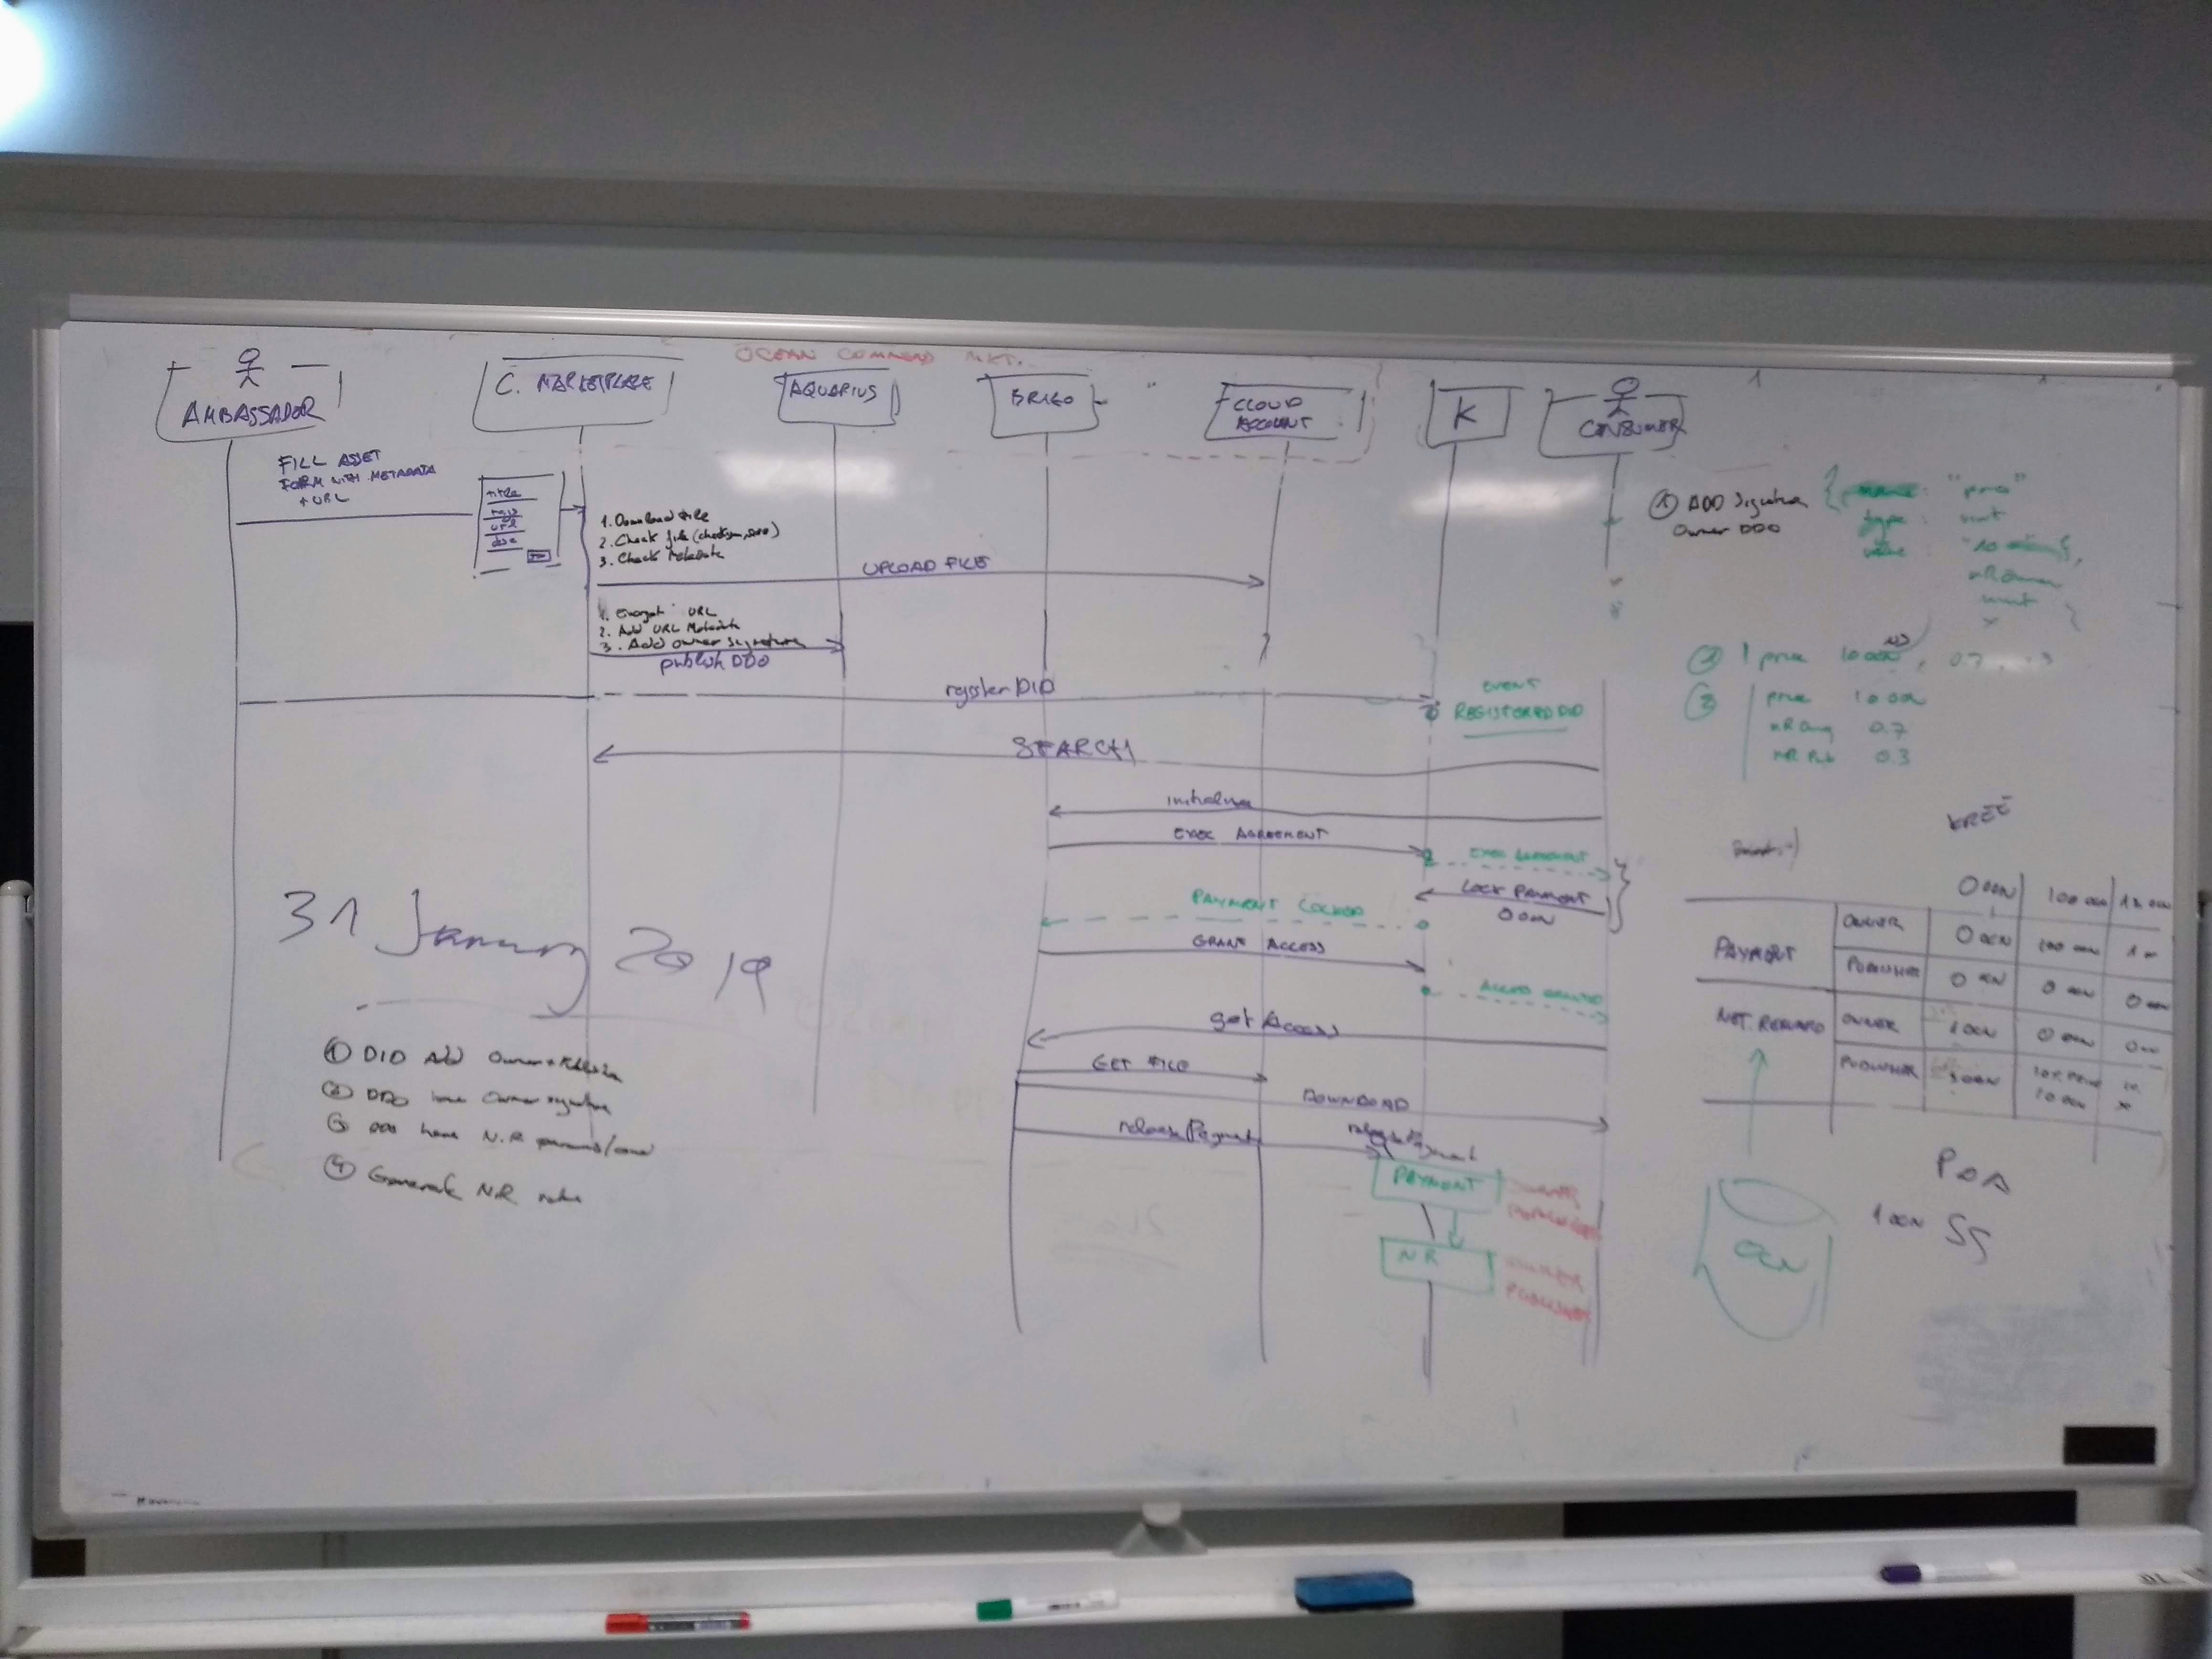 OCEAN COMMONS MKT.
AMBASSADOR
C. MARKETPLACE
AQUARIUS
BRIZO
CLOUD
ACCOUNT
K
CONSUMER
FILL ASSET
FORM WITH METADATA
+ URL
title
url
1. Download file
2. Check file (checksum,
3. Check Metadata
UPLOAD FILE
1. Encrypt URL
2. Add URL Metadata
3. Add owner signature
publish DDO
register DID
EVENT
REGISTERED DID
SEARCH
initialize
EXEC AGREEMENT
EXEC AGREEMENT
LOCK PAYMENT
0 OCN
PAYMENT LOCKED
GRANT ACCESS
ACCESS GRANTED
get Access
GET FILE
DOWNLOAD
releasePayment
PAYMENT
OWNER
PUBLISHER
NR
OWNER
PUBLISHER
31 January 2019
① DID Add Owner
② DDO Owner signature
③ N.R
④ Generate N.R
① ADD Signature
Owner DDO
name: "price"
type: uint
value: "10
② price 10 OCN, 0.7,
③ price 10 OCN
0.7
0.3
FREE
0 OCN 100 OCN
PAYMENT OWNER 0 OCN 100 OCN
PUBLISHER 0 OCN 0 OCN 0 OCN
NET. REWARD OWNER 1 OCN 0 OCN
PUBLISHER
10 OCN
OCN
POA
1 OCN